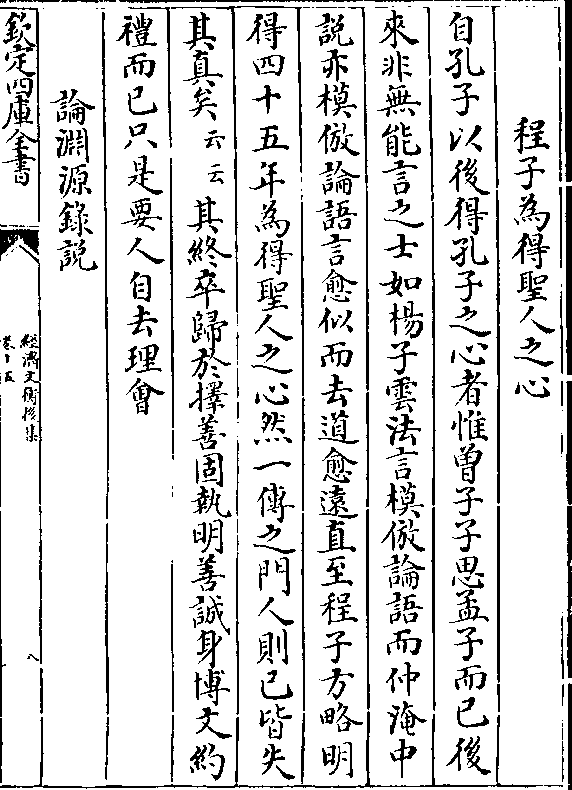 程子為得聖人之心
自孔子以後得孔子之心者惟曽子子思孟子而已後
來非無能言之士如楊子雲法言模倣論語而仲淹中
說亦模倣論語言愈似而去道愈遠直至程子方略明
得四十五年為得聖人之心然一傳之門人則已皆失
其真矣云云其終卒歸於擇善固執明善誠身博文約
禮而已只是要人自去理會
論淵源錄說
欽定四庫全書
經濟文衡後集
卷十五
八